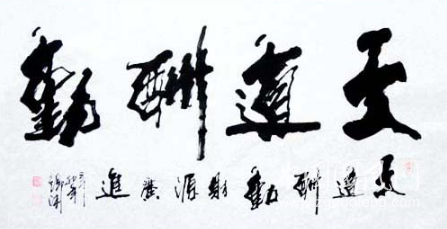 天道酬勤
天道酬勤財源廣進